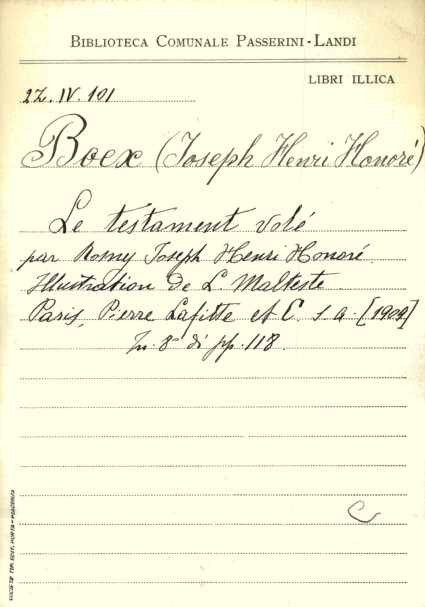 BIBLIOTECA COMUNALE PASSERINI-LANDI
LIBRI ILLICA
2Z. IV. 101
Boex (Joseph Henri Honoré)
Le testament volé
par Rosny Joseph Henri Honoré.
Illustration de L. Malteste.
Paris, Pierre Lafitte et C. s. a. [1909]
In. 8° di pp. 118.
SOCIETÀ TIP. EDIT. PORTA - PIACENZA